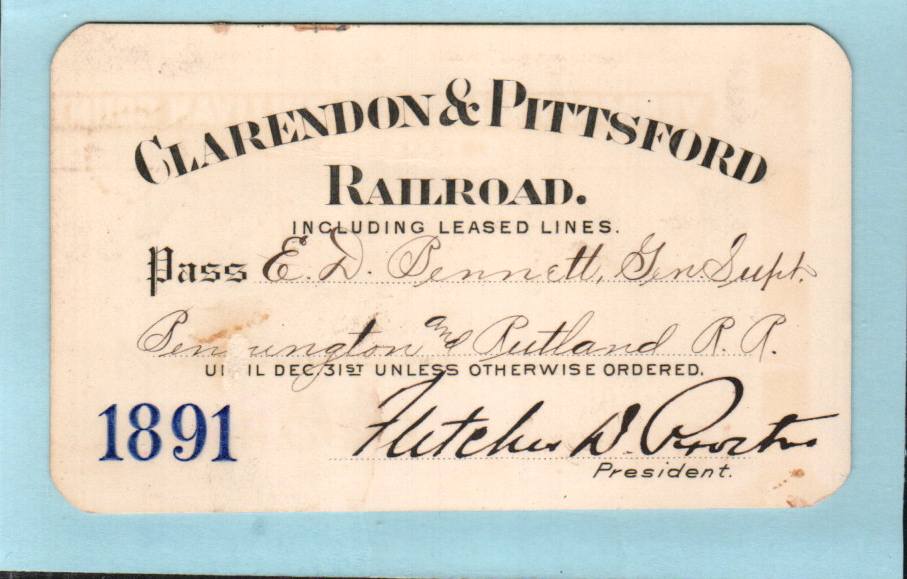 CLARENDON & PITTSFORD
RAILROAD.
INCLUDING LEASED LINES.
Pass E. D. Bennett, Gen. Supt.
Bennington and Rutland R. R.
UNTIL DEC 31ST UNLESS OTHERWISE ORDERED.
1891
Fletcher D. Proctor
President.